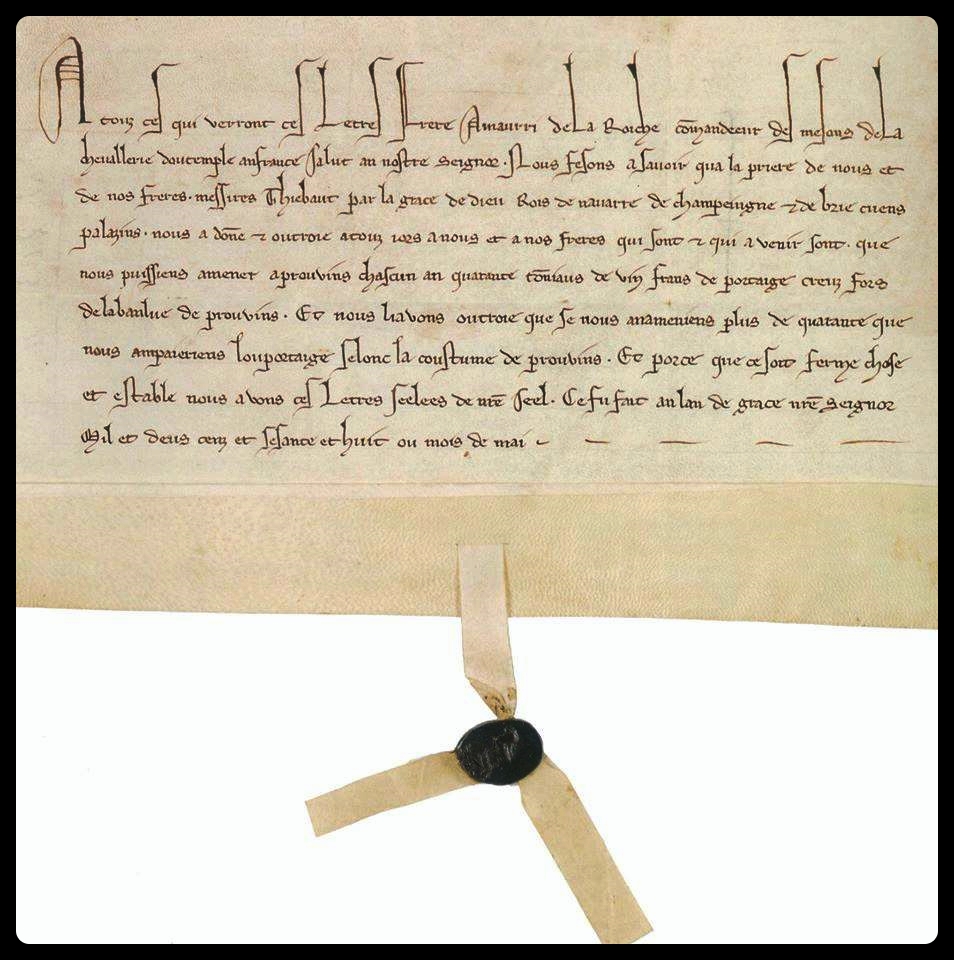 A touz ces qui verront ces Lettres Frere Amaurri de La Roiche cōmandeeur des mesons de La
chevallerie doutemple anfrance salut an nostre seignor. Nous fesons asavoir qua la priere de nous et
de nos freres. messires Thiebaut par la grace de dieu Rois de navarre de champeingne ⁊ de brie cuens
palazins. nous a dōne ⁊ outroie a touz iors a nous et a nos freres qui sont ⁊ qui a venir sont. que
nous puissiens amener a prouvins chascun an quarante tōniaus de vin frans de portaige creuz fors
de labanlue de prouvins. Et nous li avons outroie que se nous anameniens plus de quarante que
nous ampaieriens louportaige selonc la coustume de prouvins. Et porce que ce soit ferme chose
et estable nous avons ces Letres seelees de nr̄e seel. Ce fu fait an lan de grace nr̄e seignor
Mil et deus cenz et sesante et huit ou mois de mai